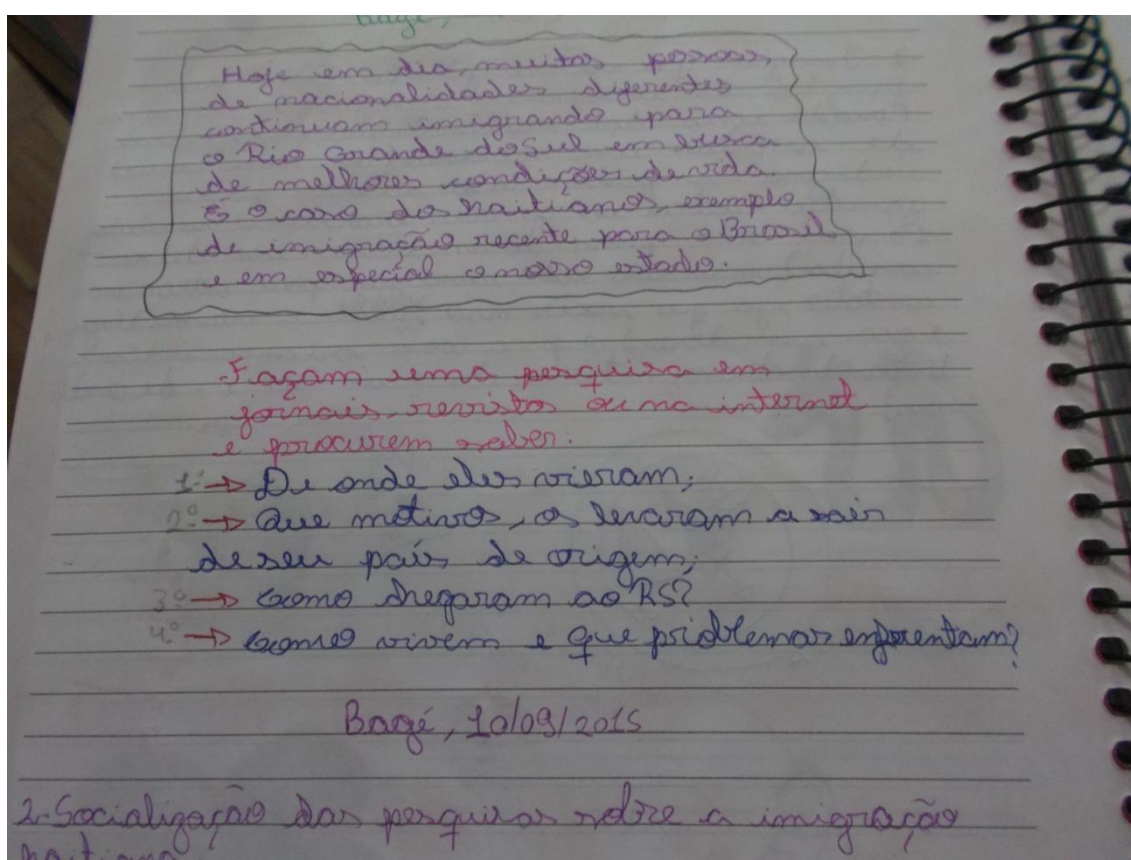 Bagé,
Hoje em dia, muitas pessoas,
de nacionalidades diferentes
continuam imigrando para
o Rio Grande do Sul em busca
de melhores condições de vida.
É o caso dos haitianos, exemplo
de imigração recente para o Brasil
e em especial o nosso estado.
Façam uma pesquisa em
jornais, revistas ou na internet
e procurem saber:
1º → De onde eles vieram;
2º → Que motivos, os levaram a sair
de seu país de origem;
3º → Como chegaram ao RS?
4º → Como vivem e que problemas enfrentam?
Bagé, 10/09/2015
2-Socialização das pesquisas sobre a imigração
haitiana